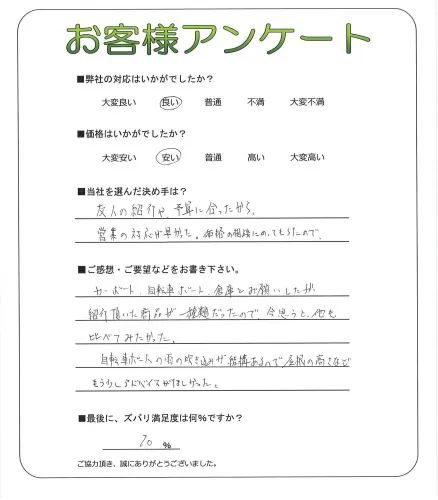 お客様アンケート
■弊社の対応はいかがでしたか？
大変良い 良い 普通 不満 大変不満
■価格はいかがでしたか？
大変安い 安い 普通 高い 大変高い
■当社を選んだ決め手は？
友人の紹介や、予算に合ったから、
営業の対応が早かった。価格の相談にのってもらたので、
■ご感想・ご要望などをお書き下さい。
カーポート、自転車ポート、倉庫をお願いしたが
紹介頂いた商品が一種類だったので、今思うと、他も
比べてみたかった。
自転車ポートへの雨の吹き込みが結構あるので屋根の高さなど
もう少しアドバイスがほしかった。
■最後に、ズバリ満足度は何％ですか？
70 ％
ご協力頂き、誠にありがとうございました。